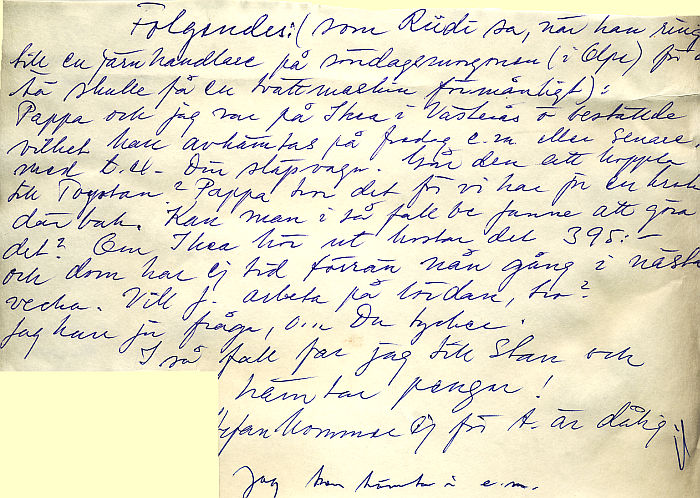 Folgendes: (som Rüdi sa, när han ring
till en järnhandlare på söndagsmorgonen (i Olpe) för a
så skulle få en tvättmaskin förmånligt):
Pappa och jag var på Ikea i Västerås o beställde
vilket kan avhämtas på fredag e.m. eller senare.
med t.ex. Din släpvagn. Går den att koppla
till Toyotan? Pappa tror det för vi har ju en krok
där bak. Kan man i så fall be Janne att göra
det? Om Ikea kör ut kostar det 395:-
och dom har ej tid förrän nån gång i nästa
vecka. Vill J. arbeta på lördan, tro?
Jag kan ju fråga, o... Du tycker.
I så fall far jag till Stan och
hämtar pengar!
kommer ej för A. är dålig.
Jag kan hämta i e.m.